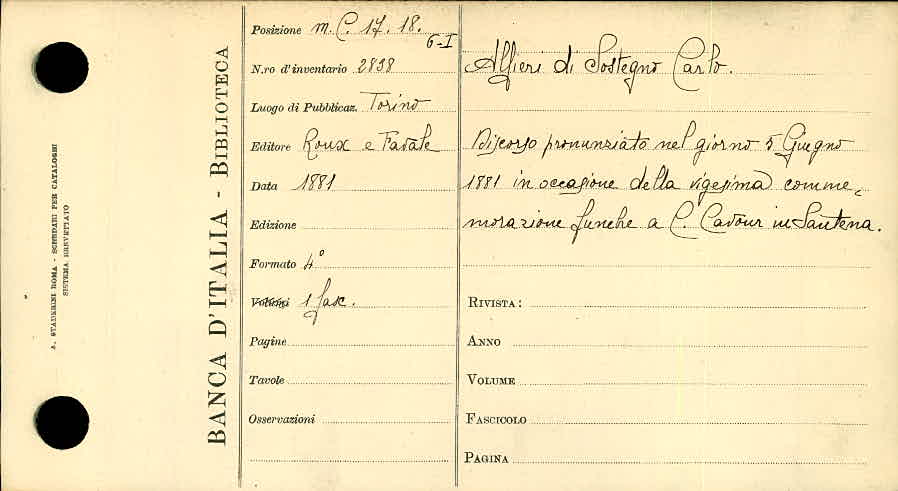 A. STADERINI ROMA - SCHEDARI PER CATALOGHI
SISTEMA BREVETTATO
BANCA D'ITALIA - BIBLIOTECA
Posizione m. C. 17. 18.
6-I
N.ro d'inventario 2838
Luogo di Pubblicaz. Torino
Editore Roux e Favale
Data 1881
Edizione
Formato 4°
Volumi 1 fasc.
Pagine
Tavole
Osservazioni
Alfieri di Sostegno Carlo.
Discorso pronunziato nel giorno 5 Giugno
1881 in occasione della vigesima comme-
morazione funebre a C. Cavour in Santena.
RIVISTA:
ANNO
VOLUME
FASCICOLO
PAGINA